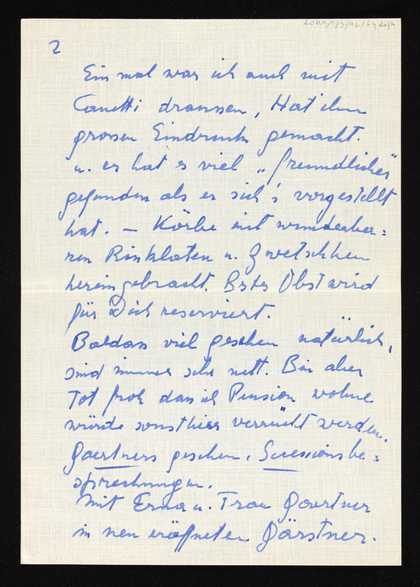 2
Ein mal war ich auch mit
Canetti draussen, Hat ihm
grossen Eindruck gemacht.
u. er hat es viel „freundlicher"
gefunden als er sich's vorgestellt
hat. — Körbe mit wunderba=
ren Ringloten u. Zwetschken
hereingebracht. Bstes Obst wird
für Dich reserviert.
Baldass viel gesehen natürlich,
sind immer sehr nett. Bin aber
Tot froh dass ich Pension wohne
würde sonst hier verrückt werden.
Gaertners gesehen. Secessionsbe=
sprechungen.
Mit Erna u. Frau Gaertner
in neu eröffneten Gärstner.